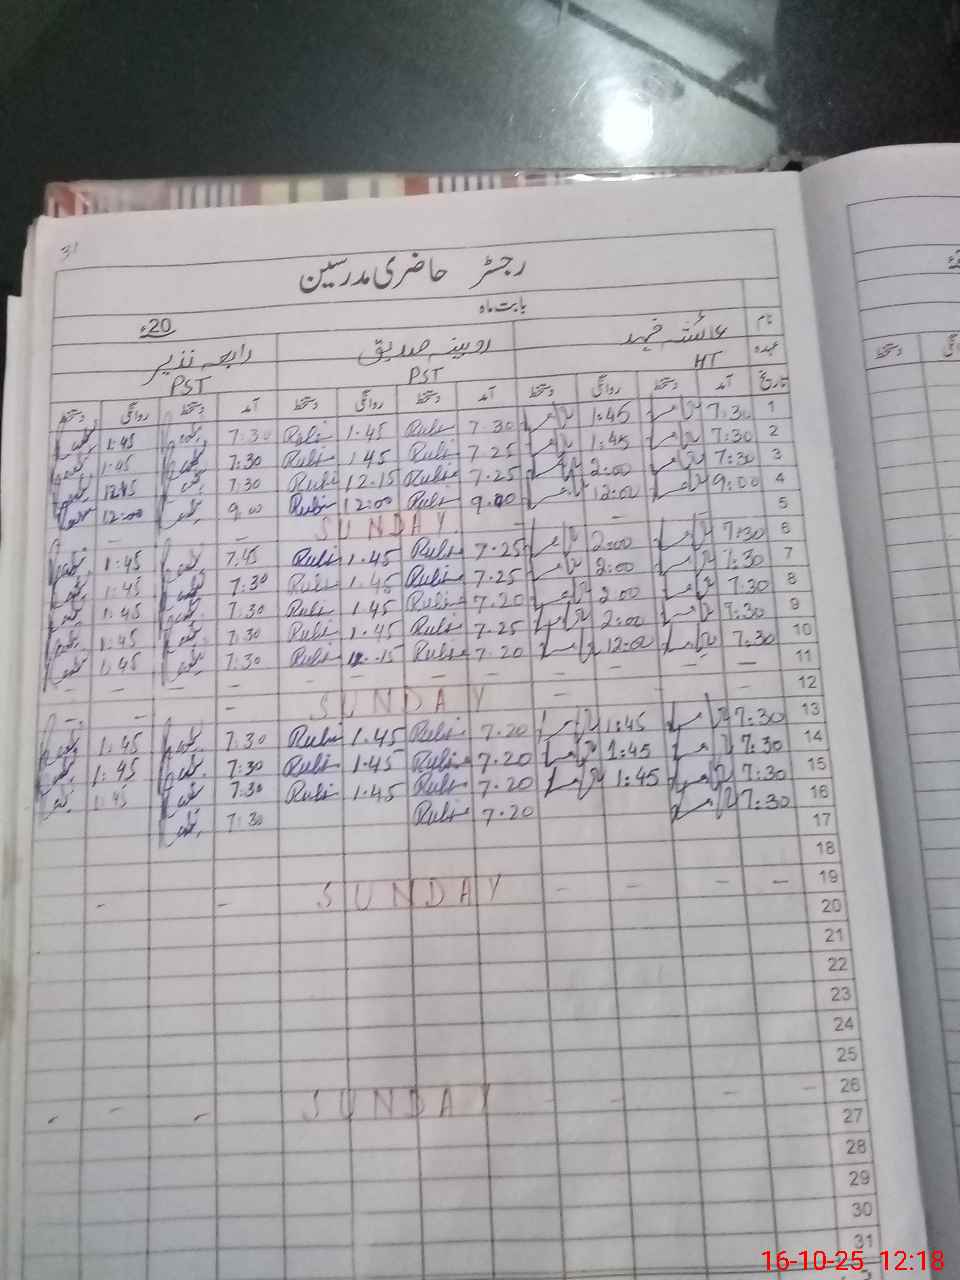 31
رجسٹر حاضری مدرسین
بابت ماہ
20ء
نام عائشہ فہد روبینہ صدیق رابعہ نذیر
عہدہ HT PST PST
تاریخ آمد دستخط روانگی دستخط آمد دستخط روانگی دستخط آمد دستخط روانگی دستخط
1 7:30 1:45 7.30 Rubi 1.45 Rubi 7:30 1:45
2 7:30 1:45 7.25 Rubi 1.45 Rubi 7:30 1:45
3 7:30 2:00 7.25 Rubi 12.15 Rubi 7:30 12:15
4 9:00 12:00 9.00 Rubi 12:00 Rubi 9:00 12:00
5 SUNDAY
6 7:30 2:00 7.25 Rubi 1.45 Rubi 7:45 1:45
7 7:30 2:00 7.25 Rubi 1.45 Rubi 7:30 1:45
8 7:30 2:00 7.20 Rubi 1.45 Rubi 7:30 1:45
9 7:30 2:00 7.25 Rubi 1.45 Rubi 7:30 1:45
10 7:30 12:00 7.20 Rubi 12.15 Rubi 7:30 1:45
11 – – – – – – – –
12 SUNDAY
13 7:30 1:45 7.20 Rubi 1.45 Rubi 7:30 1:45
14 7:30 1:45 7.20 Rubi 1.45 Rubi 7:30 1:45
15 7:30 1:45 7.20 Rubi 1.45 Rubi 7:30 1:45
16 7:30 7.20 Rubi 7:30
17
18
19 – – – – SUNDAY – –
20
21
22
23
24
25
26 – – – – SUNDAY – – –
27
28
29
30
31
16-10-25 12:18